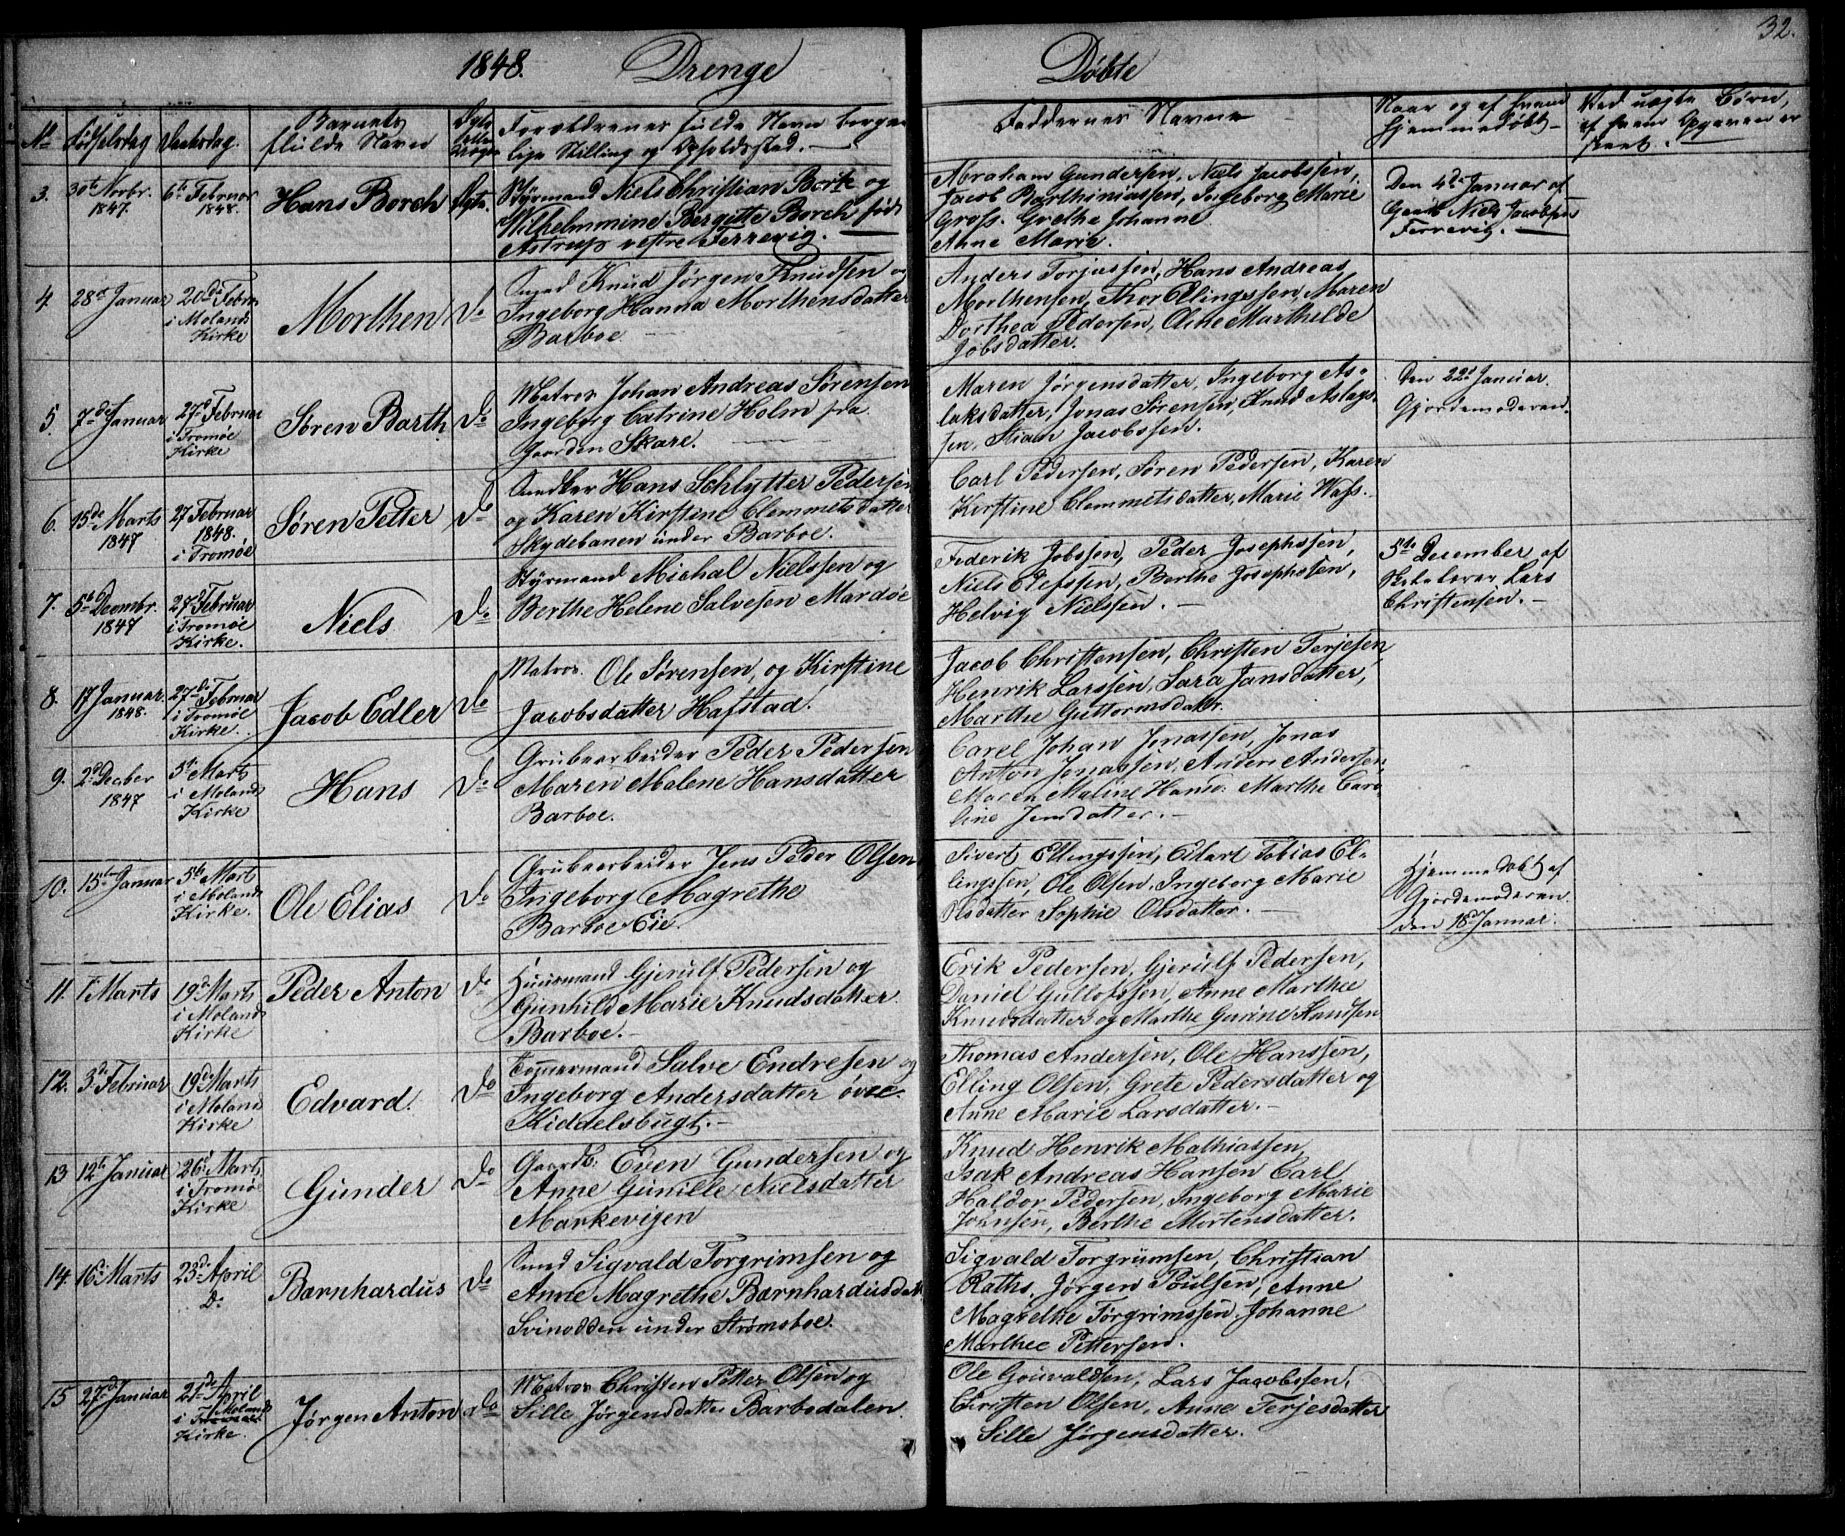 1848. Drenge Døbte 32.
No Fødselsdag Daabsdag. Barnets fulde Navn Ægte eller Uægte Forældrenes fulde Navn borger-
lige Stilling og Opholdssted.
Faddernes Navne
Naar og af hvem
hjemmedøbt
Ved uægte Børn,
af hvem Opgaven er
skeet.
3. 30te Novbr. 1847. 6te Februar 1848. Hans Borch Ægte. Styrmand Niels Christian Bork og
Wilhelmmine Bergette Borch født
Astrup vestre Ferrevig.
Abraham Gundersen, Niels Jacobssen,
Jacob Barthiniassen, Ingeborg Marie
Gross. Grethe Johanne
Anne Marie.
Den 4de Januar af
Niels Jacobsen
Ferrevig.
4 28de Januar 20de Febru
i Molands
Kirke
Morthen Do
Knud Jørgen Knudsen og
Ingeborg Hanna Morthensdatter
Barboe
Anders Torjussen, Hans Andreas
Morthensen, Thor Ellingssen, Maren
Dorthea Pedersen, Oline Marthilde
Jobsdatter.
5. 7de Januar 27de Februar
i Tromøe
Kirke
Søren Barth Do
Matros Johan Andreas Sørensen
Ingeborg Catrine Holm fra
Gaarden Skare.
Maren Jørgensdatter, Ingeborg As-
laksdatter, Jonas Sørensen, Knud Aslags-
sen, Stian Jacobssen.
Den 22de Januar.
Gjordemoderen.
6. 15de Marts
1847
27 Februar
1848.
i Tromøe
Søren Petter Do
Hans Schlytter Pedersen
og Karen Kirstine Clemmetsdatter
Skydebanen under Barboe.
Carl Pedersen, Søren Pedersen, Karen
Kirstine Clemmetsdatter, Marie Wass.
7. 5te Decembr.
1847
27de Februar
i Tromøe
Kirke.
Niels Do
Styrmand Michal Nielssen og
Berthe Helene Salvesen Mardøe
Federik Jobssen, Peder Josephssen,
Niels Olefssen, Berthe Josephssen,
Helvig Nielssen.
5te Desember af
Skolelærer Lars
Christensen.
8. 17 Januar.
1848.
27de Februar
i Tromøe
Kirke.
Jacob Edler Do
Matros. Ole Sørensen, og Kirstine
Jacobsdatter Hafstad.
Jacob Christensen, Christen Terjesen
Henrik Larssen, Sara Jansdatter,
Marthe Guttormsdattr.
9. 2de Decber
1847
5te Marts
i Molands
Kirke
Hans Do
Grubearbeider Peder Pedersen
Maren Malene Hansdatter
Barboe.
Carel Johan Jonassen, Jonas
Anton Jonassen, Anders Andersen,
Maren Maline Hansd. Marthe Caro-
line Jensdatter.
10. 15de Januar 5te Marts
i Molands
Kirke.
Ole Elias Do
Grubearbeider Jens Peder Olsen
Ingeborg Magrethe
Barboe Eie.
Sivert Ellingssen, Eilart Tobias El-
lingssen, Ole Olsen, Ingeborg Marie
Olsdatter Sophie Olsdatter.
Hjemmedøbt af
Gjordemoderen
den 18de Januar.
11. 1ste Marts 19de Marts
i Molands
Kirke
Peder Anton Do
Huusmand Gjerulf Pedersen og
Gunhild Marie Knudsdatter.
Barboe.
Erik Pedersen, Gjerulf Pedersen,
Daniel Gullofssen, Anne Marthee
Knudsdatter og Marthe Gurine Knudsen
12. 3de Februar 19de Marts
i Moland
Kirke
Edvard. Do
Tømmermand Salve Endresen og
Ingeborg Andersdatter øvre.
Kiddelsbugt.
Thomas Andersen, Ole Hanssen,
Elling Olsen, Grete Pedersdatter og
Anne Marie Larsdatter.
13 12te Januar 26de Marts
i Tromøe
Kirke
Gunder Do
Gaardb. Even Gundersen og
Anne Gunille Nielsdatter
Markevigen
Knud Henrik Mathiassen,
Isak Andreas Hansen Carl
Haldor Pedersen, Ingeborg Marie
Johnsen, Berthe Mortensdatter.
14. 16de Marts 23de April
Do
Barnhardus Do
Smed Sigvald Torgrimsen og
Anne Magrethe Barnhardusdat.
Svinodden under Strømsboe.
Sigvald Torgrumsen, Christian
Raths, Jørgen Poulsen, Anne
Magrethe Torgrimssen, Johanne
Marthee Pettersen.
15 27de Januar 21de April
i Molands
Kirke.
Jørgen Anton Do
Matros Christen Petter Olsen og
Sille Jørgensdatter Barbodalen.
Ole Grouvaldsen, Lars Jacobssen,
Christen Olsen, Anne Terjesdatter
Sille Jørgensdatter.